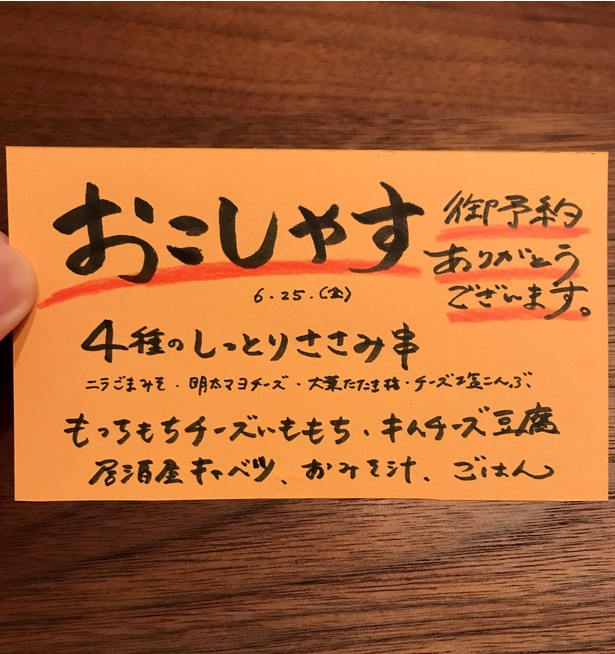 おこしやす
御予約
ありがとう
ございます。
6.25.(金)
4種のしっとりささみ串
ニラごまみそ・明太マヨチーズ・大葉たたき梅・チーズ塩こんぶ、
もっちもちチーズいももち、キムチーズ豆腐
居酒屋キャベツ、おみそ汁、ごはん